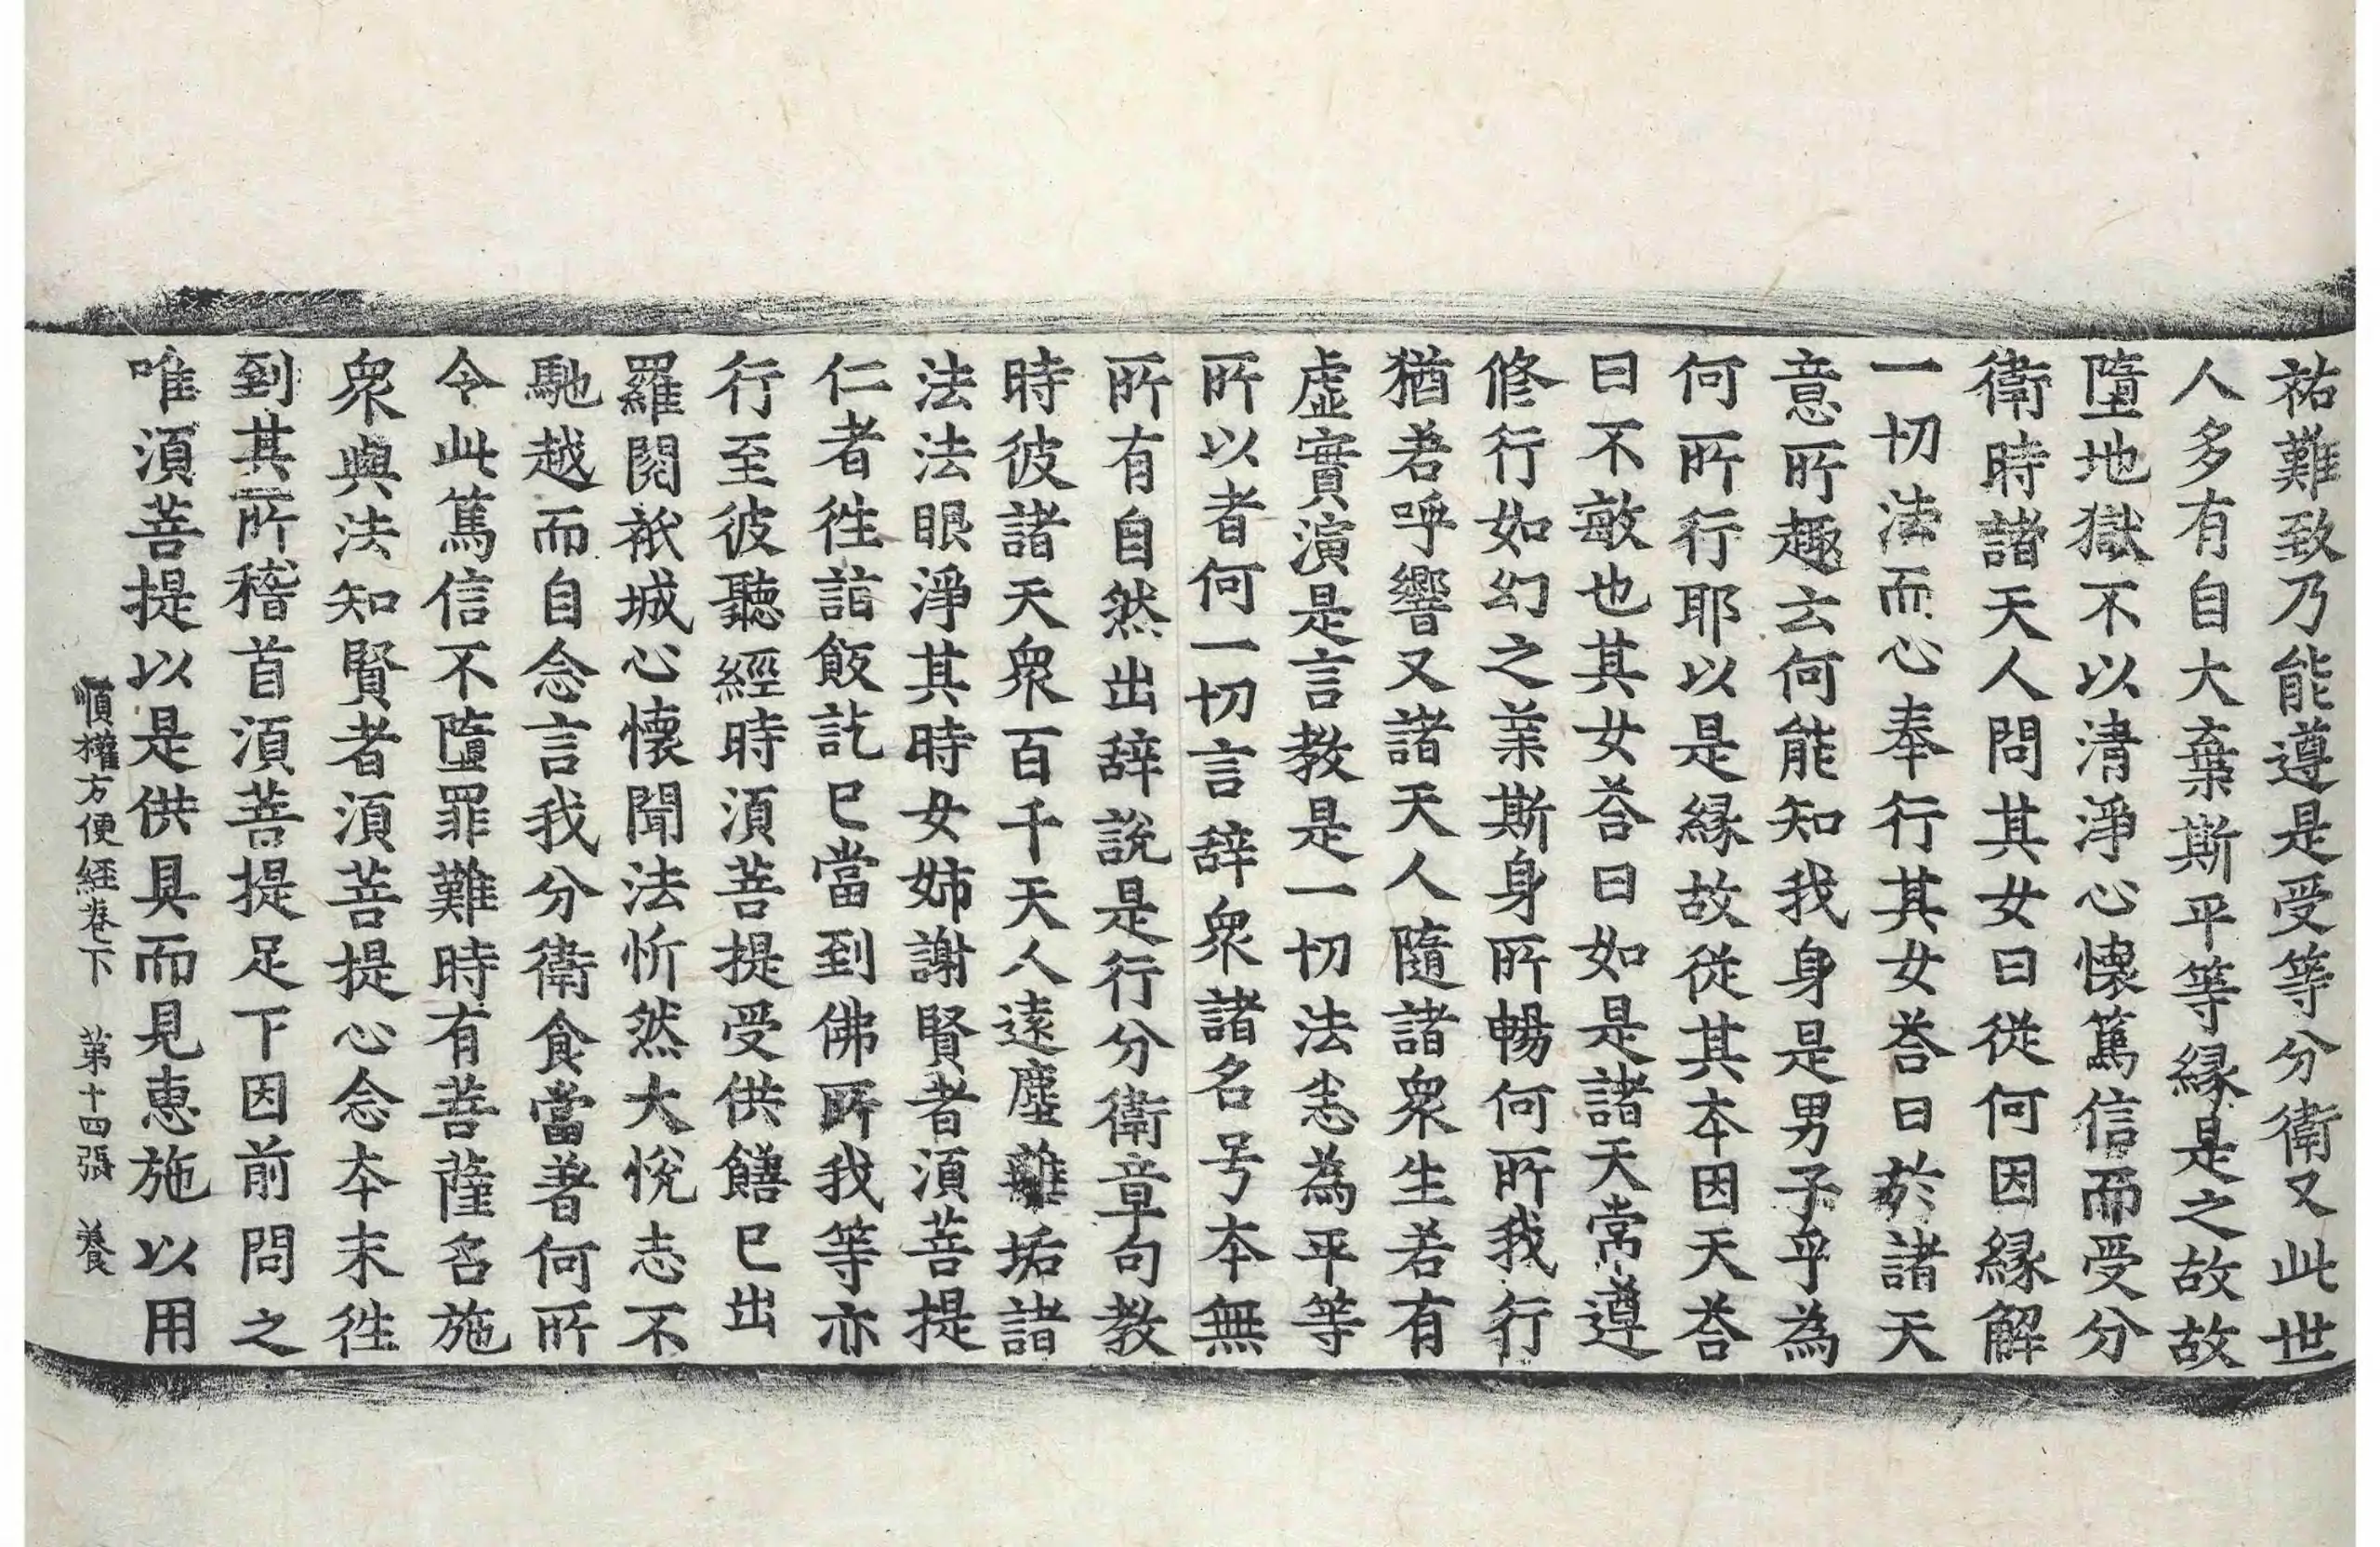 祐難致乃能遵是受等分衛又此世
人多有自大棄斯平等縁是之故故
墮地獄不以清淨心懷篤信而受分
衛時諸天人問其女曰從何因縁解
一切法而心奉行其女荅曰於諸天
意所趣云何能知我身是男子乎為
何所行耶以是縁故從其夲因天荅
曰不敏也其女荅曰如是諸天常遵
修行如幻之業斯身所暢何所我行
猶若呼響又諸天人隨諸衆生若有
虛實演是言教是一切法恙為平等
所以者何一切言辞衆諸名号夲無
所有自然出辞說是行分衛章句教
時彼諸天衆百千天人遠塵離垢諸
法法眼淨其時女姊謝賢者湏菩提
仁者徃詣飯訖已當到佛所我等亦
行至彼聽經時湏菩提受供饍已出
羅閱祇城心懷聞法忻然大悅志不
馳越而自念言我分衛食當著何所
令此篤信不墮罪難時有菩薩名施
衆與法知賢者湏菩提心念夲末徃
到其所稽首湏菩提足下因前問之
唯湏菩提以是供具而見惠施以用
順權方便經卷下　第十四張　養